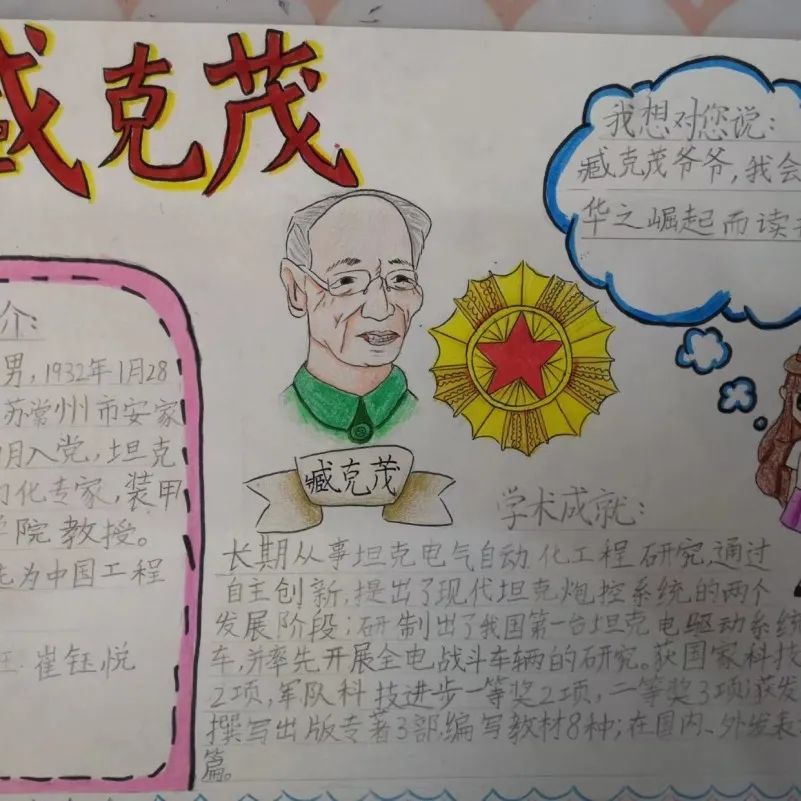 臧克茂
我想对您说:
臧克茂爷爷,我会
华之崛起而读书
介:
男,1932年1月28
苏常州市安家
月入党,坦克
动化专家,装甲
学院教授。
选为中国工程
崔钰悦
臧克茂
学术成就:
长期从事坦克电气自动化工程研究,通过
自主创新,提出了现代坦克炮控系统的两个
发展阶段;研制出了我国第一台坦克电驱动系统
车,并率先开展全电战斗车辆的研究。获国家科技
2项,军队科技进步一等奖2项,二等奖3项;获发
撰写出版专著3部,编写教材8种;在国内、外发表
篇。